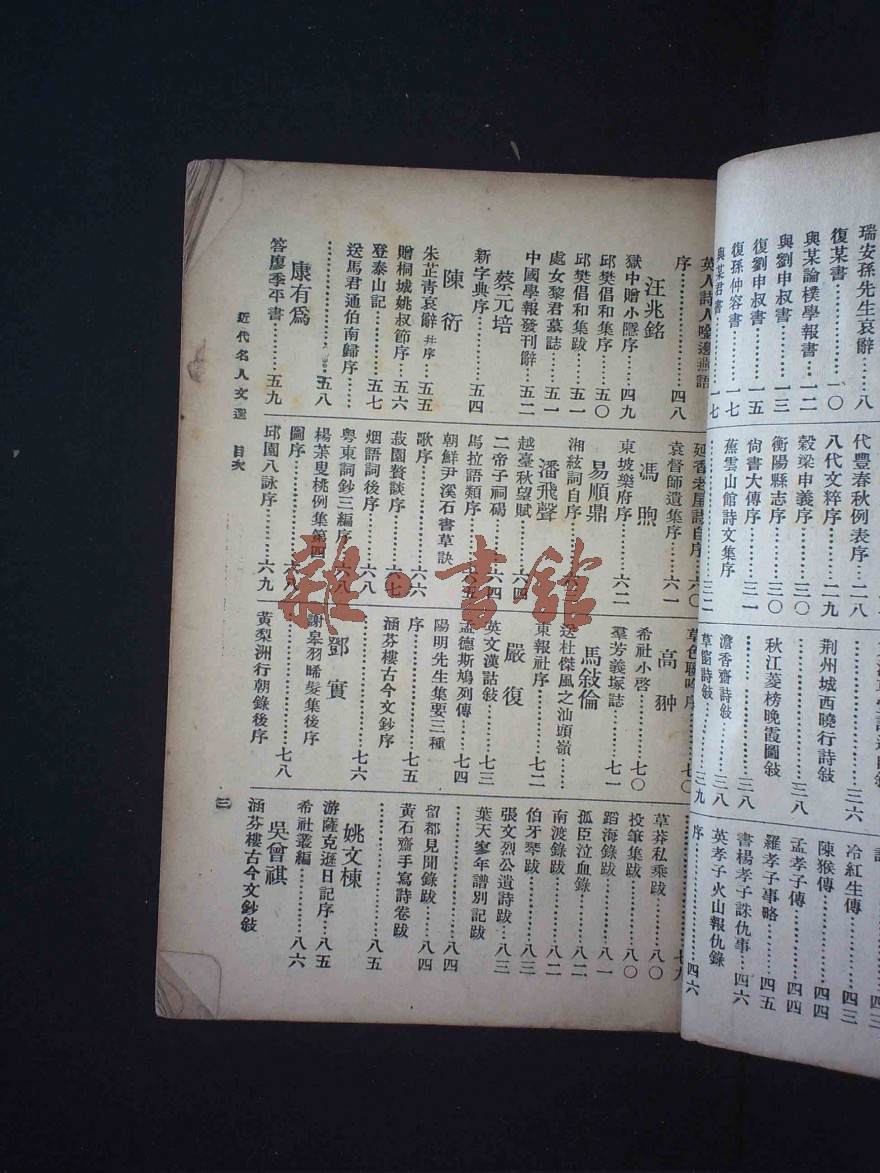 瑞安孫先生哀辭……八
復某書……一〇
與某論樸學報書……一二
與劉申叔書……一三
復劉申叔書……一五
復孫仲容書……一七
與某君書……一七
代豐春秋例表序……二八
八代文粹序……二九
穀梁申義序……三〇
衡陽縣志序……三〇
尙書大傳序……三一
蕉雲山館詩文集序
……三二
……三六
荆州城西曉行詩敍
……三八
秋江菱榜晚霞圖敍
……三八
澹香齋詩敍……三八
草窗詩敍……三九
……四三
冷紅生傳……四三
陳猴傳……四四
孟孝子傳……四四
羅孝子事略……四五
書楊孝子誅仇事…四六
英孝子火山報仇錄
序……四六
英人詩人唫邊燕語
序……四八
汪兆銘
獄中贈小隱序…四九
邱樊倡和集序…五〇
邱樊倡和集跋…五一
處女黎君墓誌…五一
中國學報發刊辭…五二
蔡元培
新字典序……五四
陳衍
朱芷靑哀辭并序…五五
贈桐城姚叔節序…五六
登泰山記……五七
送馬君通伯南歸序……
……五八
康有爲
答廖季平書……五九
延香老屋詩自序…六〇
袁督師遺集序…六一
馮煦
東坡樂府序……六二
易順鼎
湘絃詞自序
潘飛聲
越臺秋望賦……六四
二帝子祠碣……六四
馬拉語類序……六五
朝鮮尹溪石書草訣
歌序……六六
菽園贅談序……六七
烟語詞後序……六八
粤東詞鈔三編序…六八
楊菉叟桃例集第四
圖序……六八
邱園八詠序……六九
草色聯吟序……七〇
高翀
希社小啓……七〇
羣芳義塚誌……七一
馬敍倫
送杜傑風之汕頭嶺……
東報社序……七二
嚴復
英文漢詁敍……七三
孟德斯鳩列傳…七四
陽明先生集要三種
序……七五
涵芬樓古今文鈔序
……七六
鄧實
謝皋羽晞髮集後序
……
黃梨洲行朝錄後序
……七八
……七九
草莽私乘跋……八〇
投筆集跋……八〇
蹈海錄跋……八一
孤臣泣血錄……八二
南渡錄跋……八二
伯牙琴跋……八三
張文烈公遺詩跋…八三
葉天寥年譜別記跋
……八四
留都見聞錄跋…八四
黃石齋手寫詩卷跋
……八五
姚文棟
游薩克遜日記序…八五
希社叢編……八六
吳曾祺
涵芬樓古今文鈔敍
近代名人文選 目次
三
雜·書館